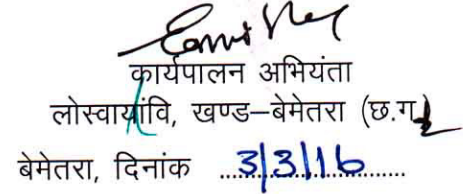 कार्यपालन अभियंता
लोस्वायांवि, खण्ड–बेमेतरा (छ.ग.)
बेमेतरा, दिनांक ....3/3/16....